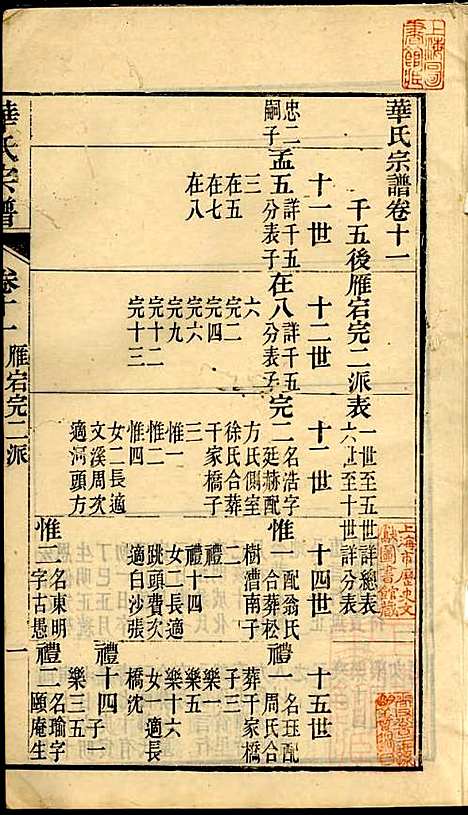 華氏宗譜卷十一
千五後雁宕完二派表一世至五世詳總表
六世至十世詳分表
十一世
十二世
十三世
十四世
十五世
忠二
嗣子
孟五詳千五
分表子
三
在五
在七
在八
在八詳千五
分表子
六
完二
完四
完六
完九
完十二
完十三
完二名浩字
廷赫配
方氏側室
徐氏合葬
干家橋子
三
惟一
惟二
惟四
女二長適
文溪周次
適河頭方
惟一配翁氏
合葬松
樹漕南子
二
禮一
禮十四
女二長適
跳頭費次
適白沙張
惟二名東明
字古愚
禮一名珏配
周氏合
葬干家橋
子三
樂一
樂五
樂十六
女一適長
橋沈
禮十四子一
樂三五
禮二名瑜字
頤庵生
華氏宗譜
卷十一
雁宕完二派
一
上海圖書館藏
上海市歷史文獻圖書館藏